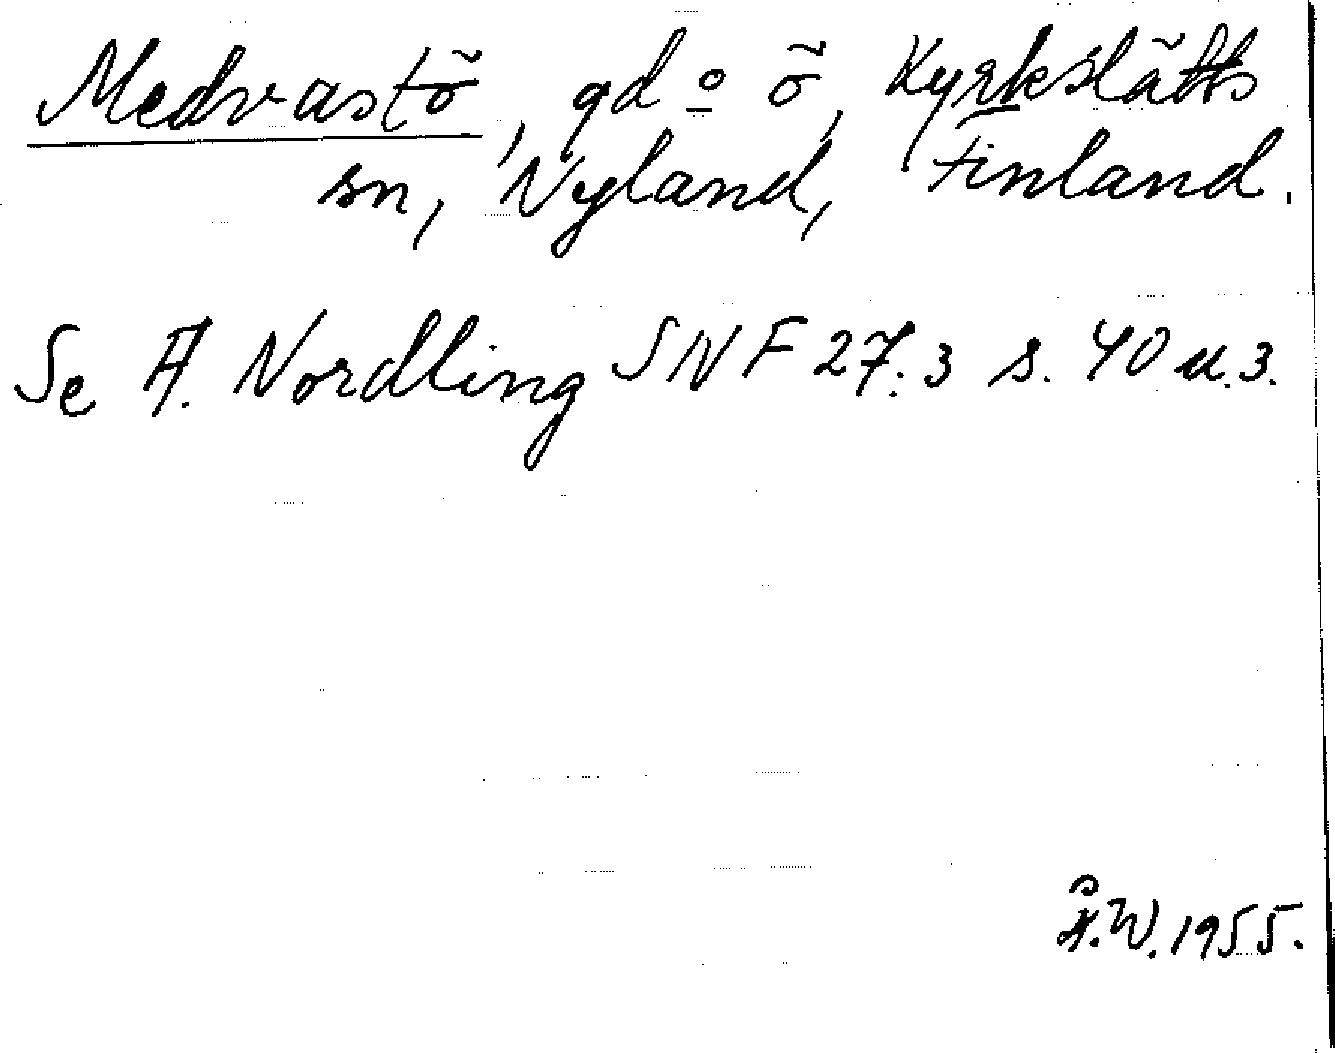 Medvastö, gd o ö, Kyrkslätts
sn, Nyland, Finland.
Se A. Nordling SNF 27.3 s. 40 u.3.
Å.W. 1955.